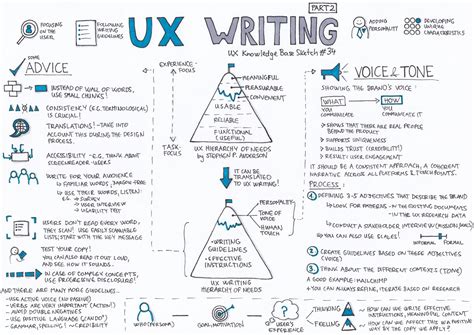 FOCUSING
ON THE
USER
FOLLOWING
WRITING
GUIDELINES
UX WRITING
PART 2
UX Knowledge Base Sketch #34
ADDING
PERSONALITY
DEVELOPING
UNIQUE
CHARACTERISTICS
SOME
ADVICE
INSTEAD OF WALL OF WORDS,
USE SMALL CHUNKS!
CONSISTENCY (E.G. TERMINOLOGICAL)
IS CRUCIAL!
TRANSLATIONS! - TAKE INTO
ACCOUNT THIS DURING THE DESIGN
PROCESS.
ACCESSIBILITY - E.G. THINK ABOUT
SCREENREADER USERS
WRITE FOR YOUR AUDIENCE
FAMILIAR WORDS, JARGON-FREE
→ USE THEIR WORDS, LISTEN!
E.G. - SURVEY
- INTERVIEW
- USABILITY TEST
USERS DON'T READ EVERY WORD,
THEY SCAN! USE EASILY SCANNABLE
LISTS; START WITH THE KEY MESSAGE
TEST YOUR COPY!
YOU CAN ALSO READ IT OUT LOUD,
AND SEE HOW IT SOUNDS!
IN CASE OF COMPLEX CONCEPTS,
USE PROGRESSIVE DISCLOSURE!
AND THERE ARE MANY MORE GUIDELINES:
- USE ACTIVE VOICE (NO PASSIVE)
- VERBS ARE VERY IMPORTANT (ACTION!)
- AVOID DOUBLE NEGATIVES
- USE POSITIVE LANGUAGE (CAN DO)
- GRAMMAR, SPELLING! / CREDIBILITY
EXPERIENCE-
FOCUS
TASK-
FOCUS
MEANINGFUL
PLEASURABLE
CONVENIENT
USABLE
RELIABLE
FUNCTIONAL
(USEFUL)
UX HIERARCHY OF NEEDS
BY STEPHEN P. ANDERSON
IT CAN BE
TRANSLATED
TO UX WRITING!
PERSONALITY
TONE OF
VOICE
HUMAN
TOUCH
- WRITING
GUIDELINES
- EFFECTIVE
INSTRUCTIONS
UX WRITING
HIERARCHY OF NEEDS
VOICE & TONE
SHOWING THE BRAND'S VOICE
WHAT
YOU
COMMUNICATE
HOW
YOU
COMMUNICATE IT
→ SHOWS THAT THERE ARE REAL PEOPLE
BEHIND THE PRODUCT
→ SUPPORTS UNIQUENESS
→ BUILDS TRUST / CREDIBILITY
→ RESULT: USER ENGAGEMENT
IT SHOULD BE A CONSISTENT APPROACH, A COHERENT
NARRATIVE ACROSS ALL PLATFORMS & TOUCHPOINTS.
PROCESS:
1 DEFINING 3-5 ADJECTIVES THAT DESCRIBE THE BRAND
LOOK FOR MESSAGES - IN THE EXISTING DOCUMENTS
- IN THE UX RESEARCH DATA
→ CONDUCT A STAKEHOLDER INTERVIEW (MISSION, ...)
→ YOU CAN ALSO USE SCALES!
INFORMAL
FORMAL
2 CREATE GUIDELINES BASED ON THESE ADJECTIVES
(VOICE)
3 THINK ABOUT THE DIFFERENT CONTEXTS (TONE)
A GOOD EXAMPLE: MAILCHIMP
+ YOU CAN ALWAYS REFINE, ITERATE BASED ON RESEARCH
WHO (PERSONA)
GOAL - MOTIVATION
USER'S
EXPERIENCE
THINKING
FEELING
→ HOW CAN WE WRITE EFFECTIVE
INSTRUCTIONS, MEANINGFUL CONTENT